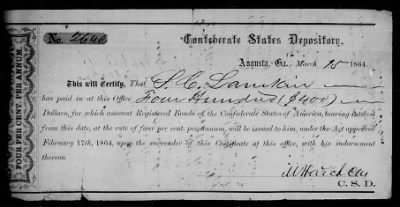 FOUR PER CENT. PER ANNUM.
No. 2640
Confederate States Depository.
Augusta, Ga., March 15 1864.
This will Certify, That S. C. Lamkin
has paid in at this Office, Four Hundred ($400)
Dollars, for which amount Registered Bonds of the Confederate States of America, bearing interest
from this date, at the rate of four per cent. per annum, will be issued to him, under the Act approved
February 17th, 1864, upon the surrender of this Certificate at this office, with his indorsement
thereon.
C. S. D.